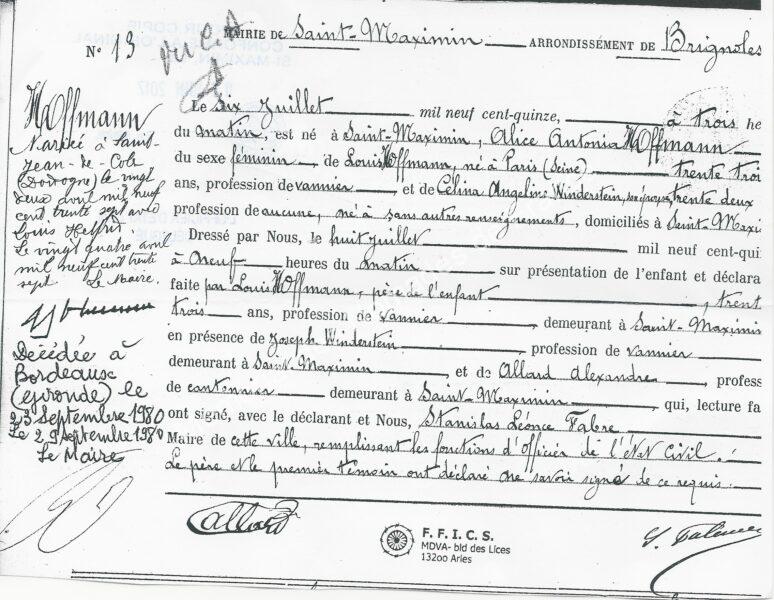 MAIRIE DE Saint-Maximin ARRONDISSEMENT DE Brignoles
N° 13
vu C.A
Hoffmann
Mariée à Saint-
Jean-de-Cole
(Dordogne) le vingt
deux avril mil neuf
cent trente sept avec
Louis Helfrit
Le vingt quatre avril
mil neuf cent trente
sept Le Maire.
Décédée à
Bordeaux
(Gironde) le
23 Septembre 1980
Le 29 Septembre 1980
Le Maire
Le Six Juillet mil neuf cent-quinze, à trois he
du matin, est né à Saint-Maximin, Alice Antonia Hoffmann
du sexe féminin de Louis Hoffmann, né à Paris (Seine) trente troi
ans, profession de vannier et de Célina Angeline Winderstein, son épouse, trente deux
profession de aucune, né à sans autres renseignements, domiciliés à Saint-Maxi
Dressé par Nous, le huit juillet mil neuf cent-qui
à neuf heures du matin sur présentation de l'enfant et déclara
faite par Louis Hoffmann, père de l'enfant, trent
trois ans, profession de vannier, demeurant à Saint-Maximi
en présence de Joseph Winderstein, profession de vannier
demeurant à Saint-Maximin, et de Allard Alexandre, profess
de cantonnier demeurant à Saint-Maximin, qui, lecture fa
ont signé, avec le déclarant et Nous, Stanislas Léonce Fabre
Maire de cette ville, remplissant les fonctions d'officier de l'état Civil.
Le père et le premier témoin ont déclaré ne savoir signé de ce requis.
Allard
F.F.I.C.S.
MDVA- bld des Lices
13200 Arles